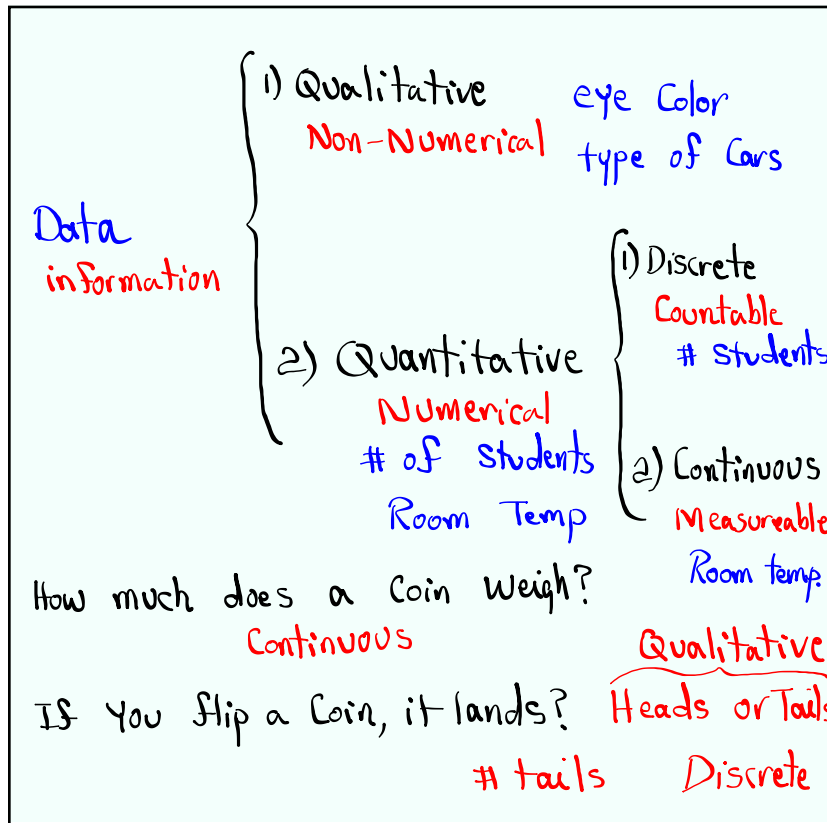 1) Qualitative
Non-Numerical
eye Color
type of Cars
Data
information
2) Quantitative
Numerical
# of Students
Room Temp
1) Discrete
Countable
# Students
2) Continuous
Measureable
Room temp.
How much does a Coin Weigh?
Continuous
If You flip a Coin, it lands?
Qualitative
Heads or Tails
# tails Discrete